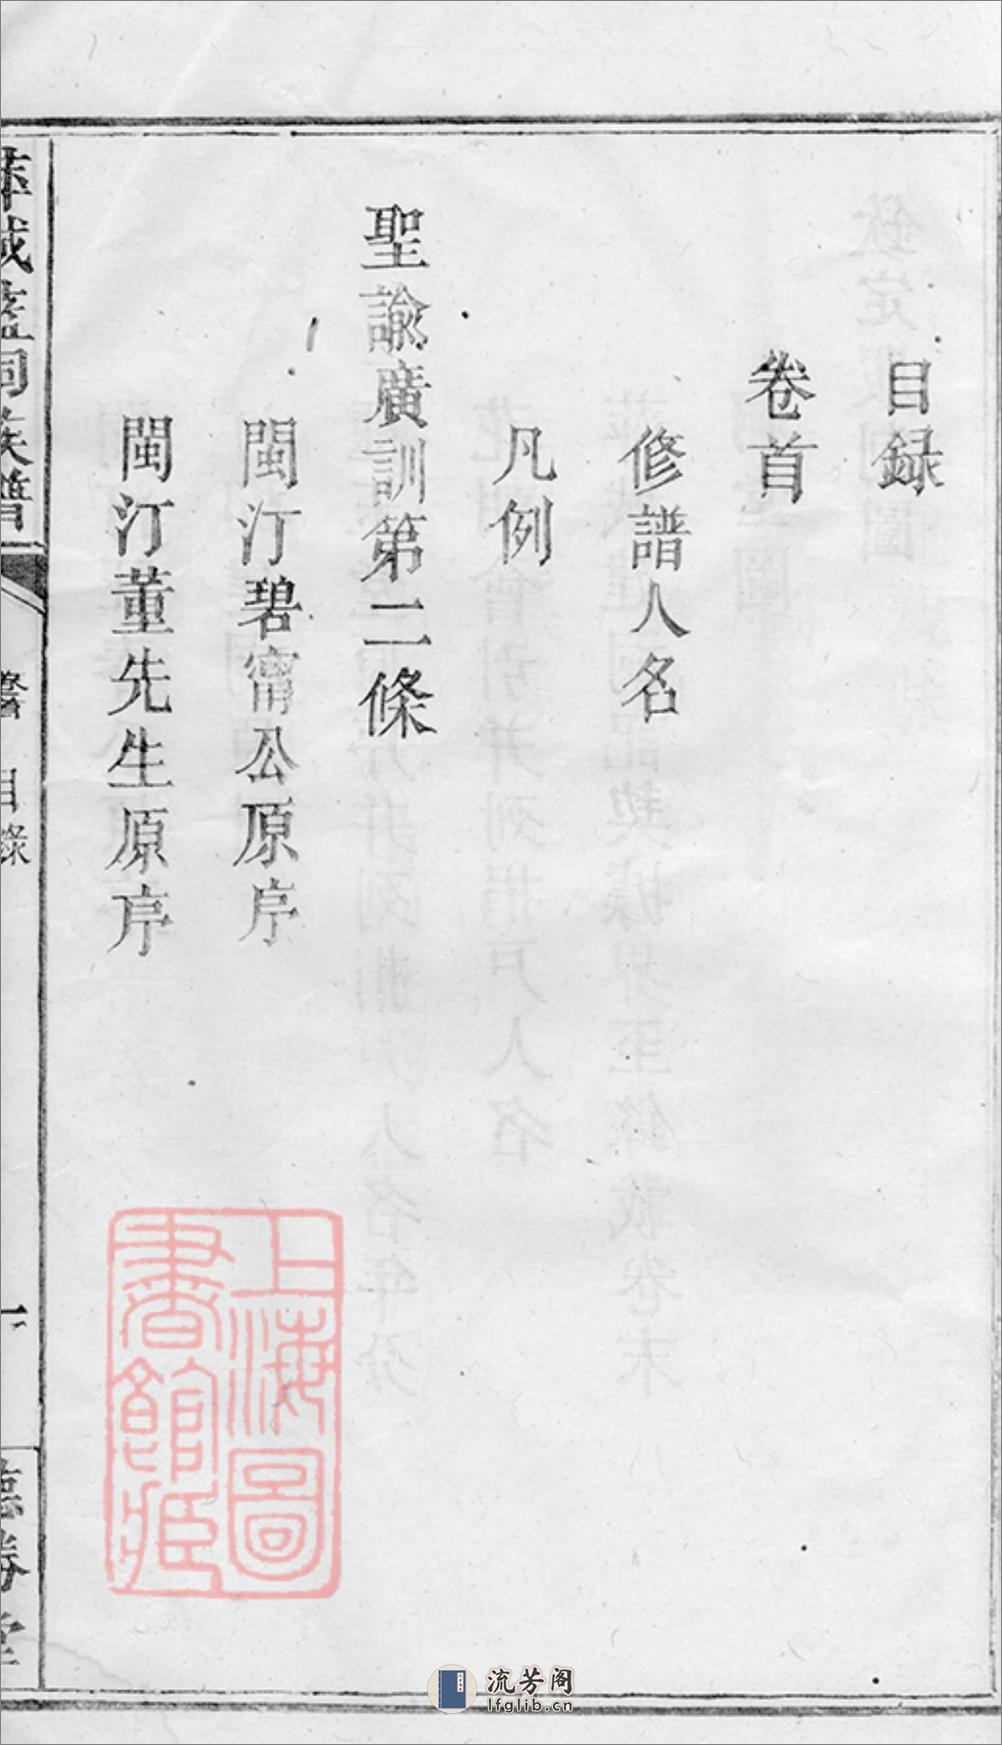 目録
卷首
修譜人名
凡例
聖諭廣訓第二條
閩汀碧甯公原序
閩汀董先生原序
城 祠族譜
目錄
上海圖
書館藏
流芳阁
lfglib.cn